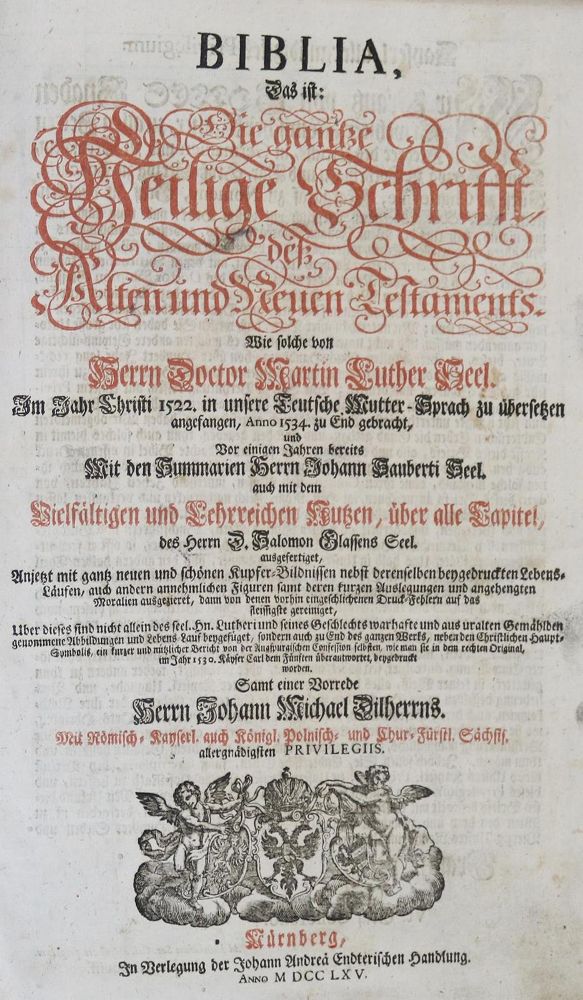 BIBLIA,
Das ist:
Die gantze
Heilige Schrifft,
deß
Alten und Neuen Testaments.
Wie solche von
Herrn Doctor Martin Luther Seel.
Im Jahr Christi 1522. in unsere Teutsche Mutter-Sprach zu übersetzen
angefangen, Anno 1534. zu End gebracht,
und
Vor einigen Jahren bereits
Mit den Summarien Herrn Johann Sauberti Seel.
auch mit dem
Vielfältigen und Lehrreichen Nutzen, über alle Capitel,
des Herrn D. Salomon Glassens Seel.
ausgefertiget,
Anjetzt mit gantz neuen und schönen Kupfer-Bildnissen nebst derenselben beygedruckten Lebens-
Läufen, auch andern annehmlichen Figuren samt deren kurzen Auslegungen und angehengten
Moralien ausgezieret, dann von denen vorhin eingeschlichenen Druck-Fehlern auf das
fleissigste gereiniget,
Uber dieses sind nicht allein des seel. Hn. Lutheri und seines Geschlechts warhafte und aus uralten Gemählden
genommene Abbildungen und Lebens Lauf beygefüget, sondern auch zu End des ganzen Werks, neben den Christlichen Haupt-
Symbolis, ein kurzer und nützlicher Bericht von der Augspurgischen Confession selbsten, wie man sie in dem rechten Original,
im Jahr 1530. Käyser Carl dem Fünften überantwortet, beygedruckt
worden.
Samt einer Vorrede
Herrn Johann Michael Dilherrns.
Mit Römisch-Kayserl. auch Königl. Polnisch- und Chur-Fürstl. Sächsis.
allergnädigsten PRIVILEGIIS.
Nürnberg,
In Verlegung der Johann Andreä Endterischen Handlung.
ANNO M DCC LXV.